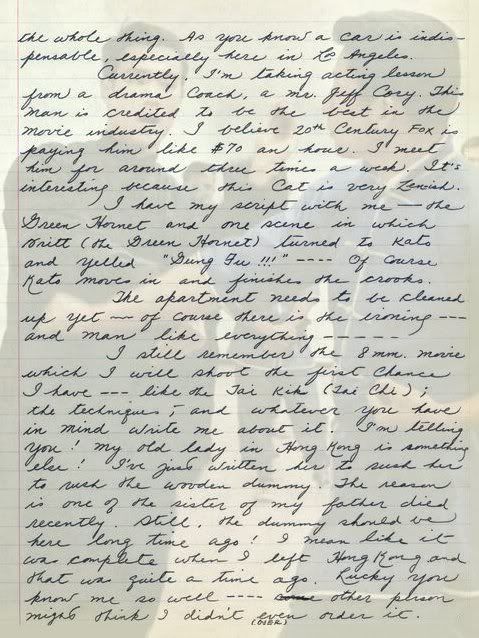 the whole thing. As you know a car is indis-
pensable, especially here in Los Angeles.
Currently, I'm taking acting lesson
from a drama coach, a mr. Jeff Cory. This
man is credited to be the best in the
movie industry. I believe 20th Century Fox is
paying him like $70 an hour. I meet
him for around three times a week. It's
interesting because this Cat is very Jewish.
I have my script with me — the
Green Hornet and one scene in which
Britt (the Green Hornet) turned to Kato
and yelled "Gung Fu !!!" ---- Of course
Kato moves in and finishes the crooks.
The apartment needs to be cleaned
up yet — of course there is the ironing ---
and man like everything -----
I still remember the 8 mm. movie
which I will shoot the first chance
I have --- like the Tai Kik (Tai Chi) ;
the techniques ; and whatever you have
in mind write me about it. I'm telling
you! my old lady in Hong Kong is something
else! I've just written her to rush her
to rush the wooden dummy. The reason
is one of the sister of my father died
recently. Still, the dummy should be
here long time ago! I mean like it
was complete when I left Hong Kong and
that was quite a time ago. Lucky you
know me so well ---- other person
might think I didn't even order it.
(OVER)